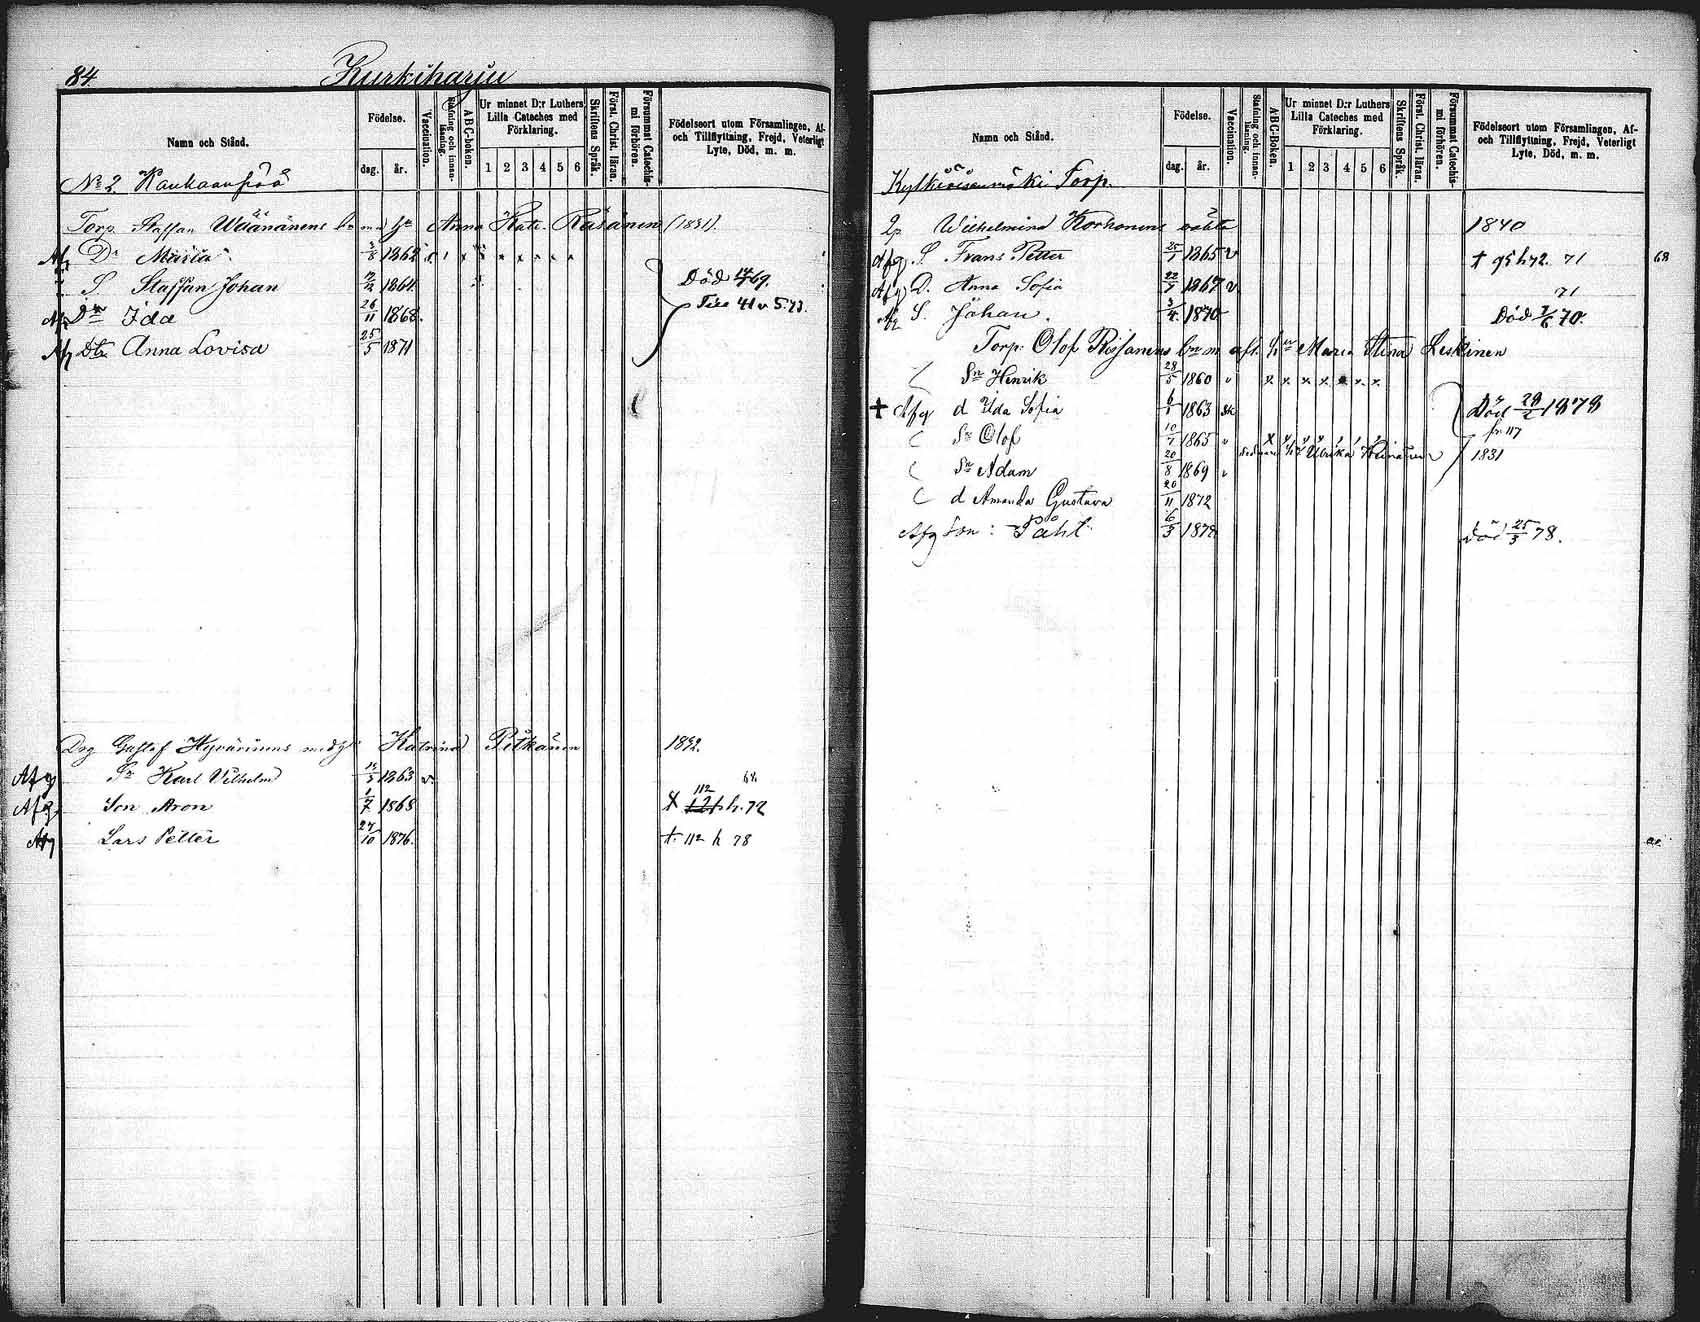 84.
Kurkiharju
Namn och Stånd.
Födelse.
dag. år.
Vaccination.
Stafning och innanläsning.
ABC-boken.
Ur minnet D:r Luthers Lilla Cateches med Förklaring.
1 2 3 4 5 6
Skriftens Språk.
Först. Christ. läran.
Försummat Catechismi förhören.
Födelseort utom Församlingen, Af- och Tillflyttning, Frejd, Veterligt Lyte, Död, m. m.
No 2
Torp. Staffan Wäänänens Anna Kate. Räsänen (1831).
Maria 3/8 1862
S Staffan Johan 1864 Död 14/4 69.
Ida 26/11 1868. 41 v 5. 73.
Anna Lovisa 25/5 1871
Gustaf Hyvärinens Katrina Pitkänen 1832.
Afg Sn Karl Vilhelm 1863 v.
Afg. Son Aron 1/7 1868 112 121 h. 72
Afg Lars Petter 27/10 1876. t. 112 h 78
Namn och Stånd.
Födelse.
dag. år.
Vaccination.
Stafning och innanläsning.
ABC-Boken.
Ur minnet D:r Luthers Lilla Cateches med Förklaring.
1 2 3 4 5 6
Skriftens Språk.
Först. Christ. läran.
Försummat Catechismi förhören.
Födelseort utom Församlingen, Af- och Tillflyttning, Frejd, Veterligt Lyte, Död, m. m.
Torp.
Wilhelmina Korhonens 1840
Afg S. Frans Petter 25/1 1865 v t 95 h 72. 71 68
Afg D. Anna Sofia 22/7 1867 v. 71
S. Johan. 3/4 1870 Död 7/6 70.
Torp. Olof Räsänens Maria Stina Leskinen
Sn Henrik 28/5 1860 v x x x x x x x
Afg d Ida Sofia 6/1 1863 Död 28/2 1878
Sn Olof 10/7 1865 v fr. 117
Ulrika Heinänen 1831
Sn Adam 20/8 1869 v
d Amanda Gustava 20/11 1872
Afg Son: Påhl 6/3 1878 död 25/3 78.